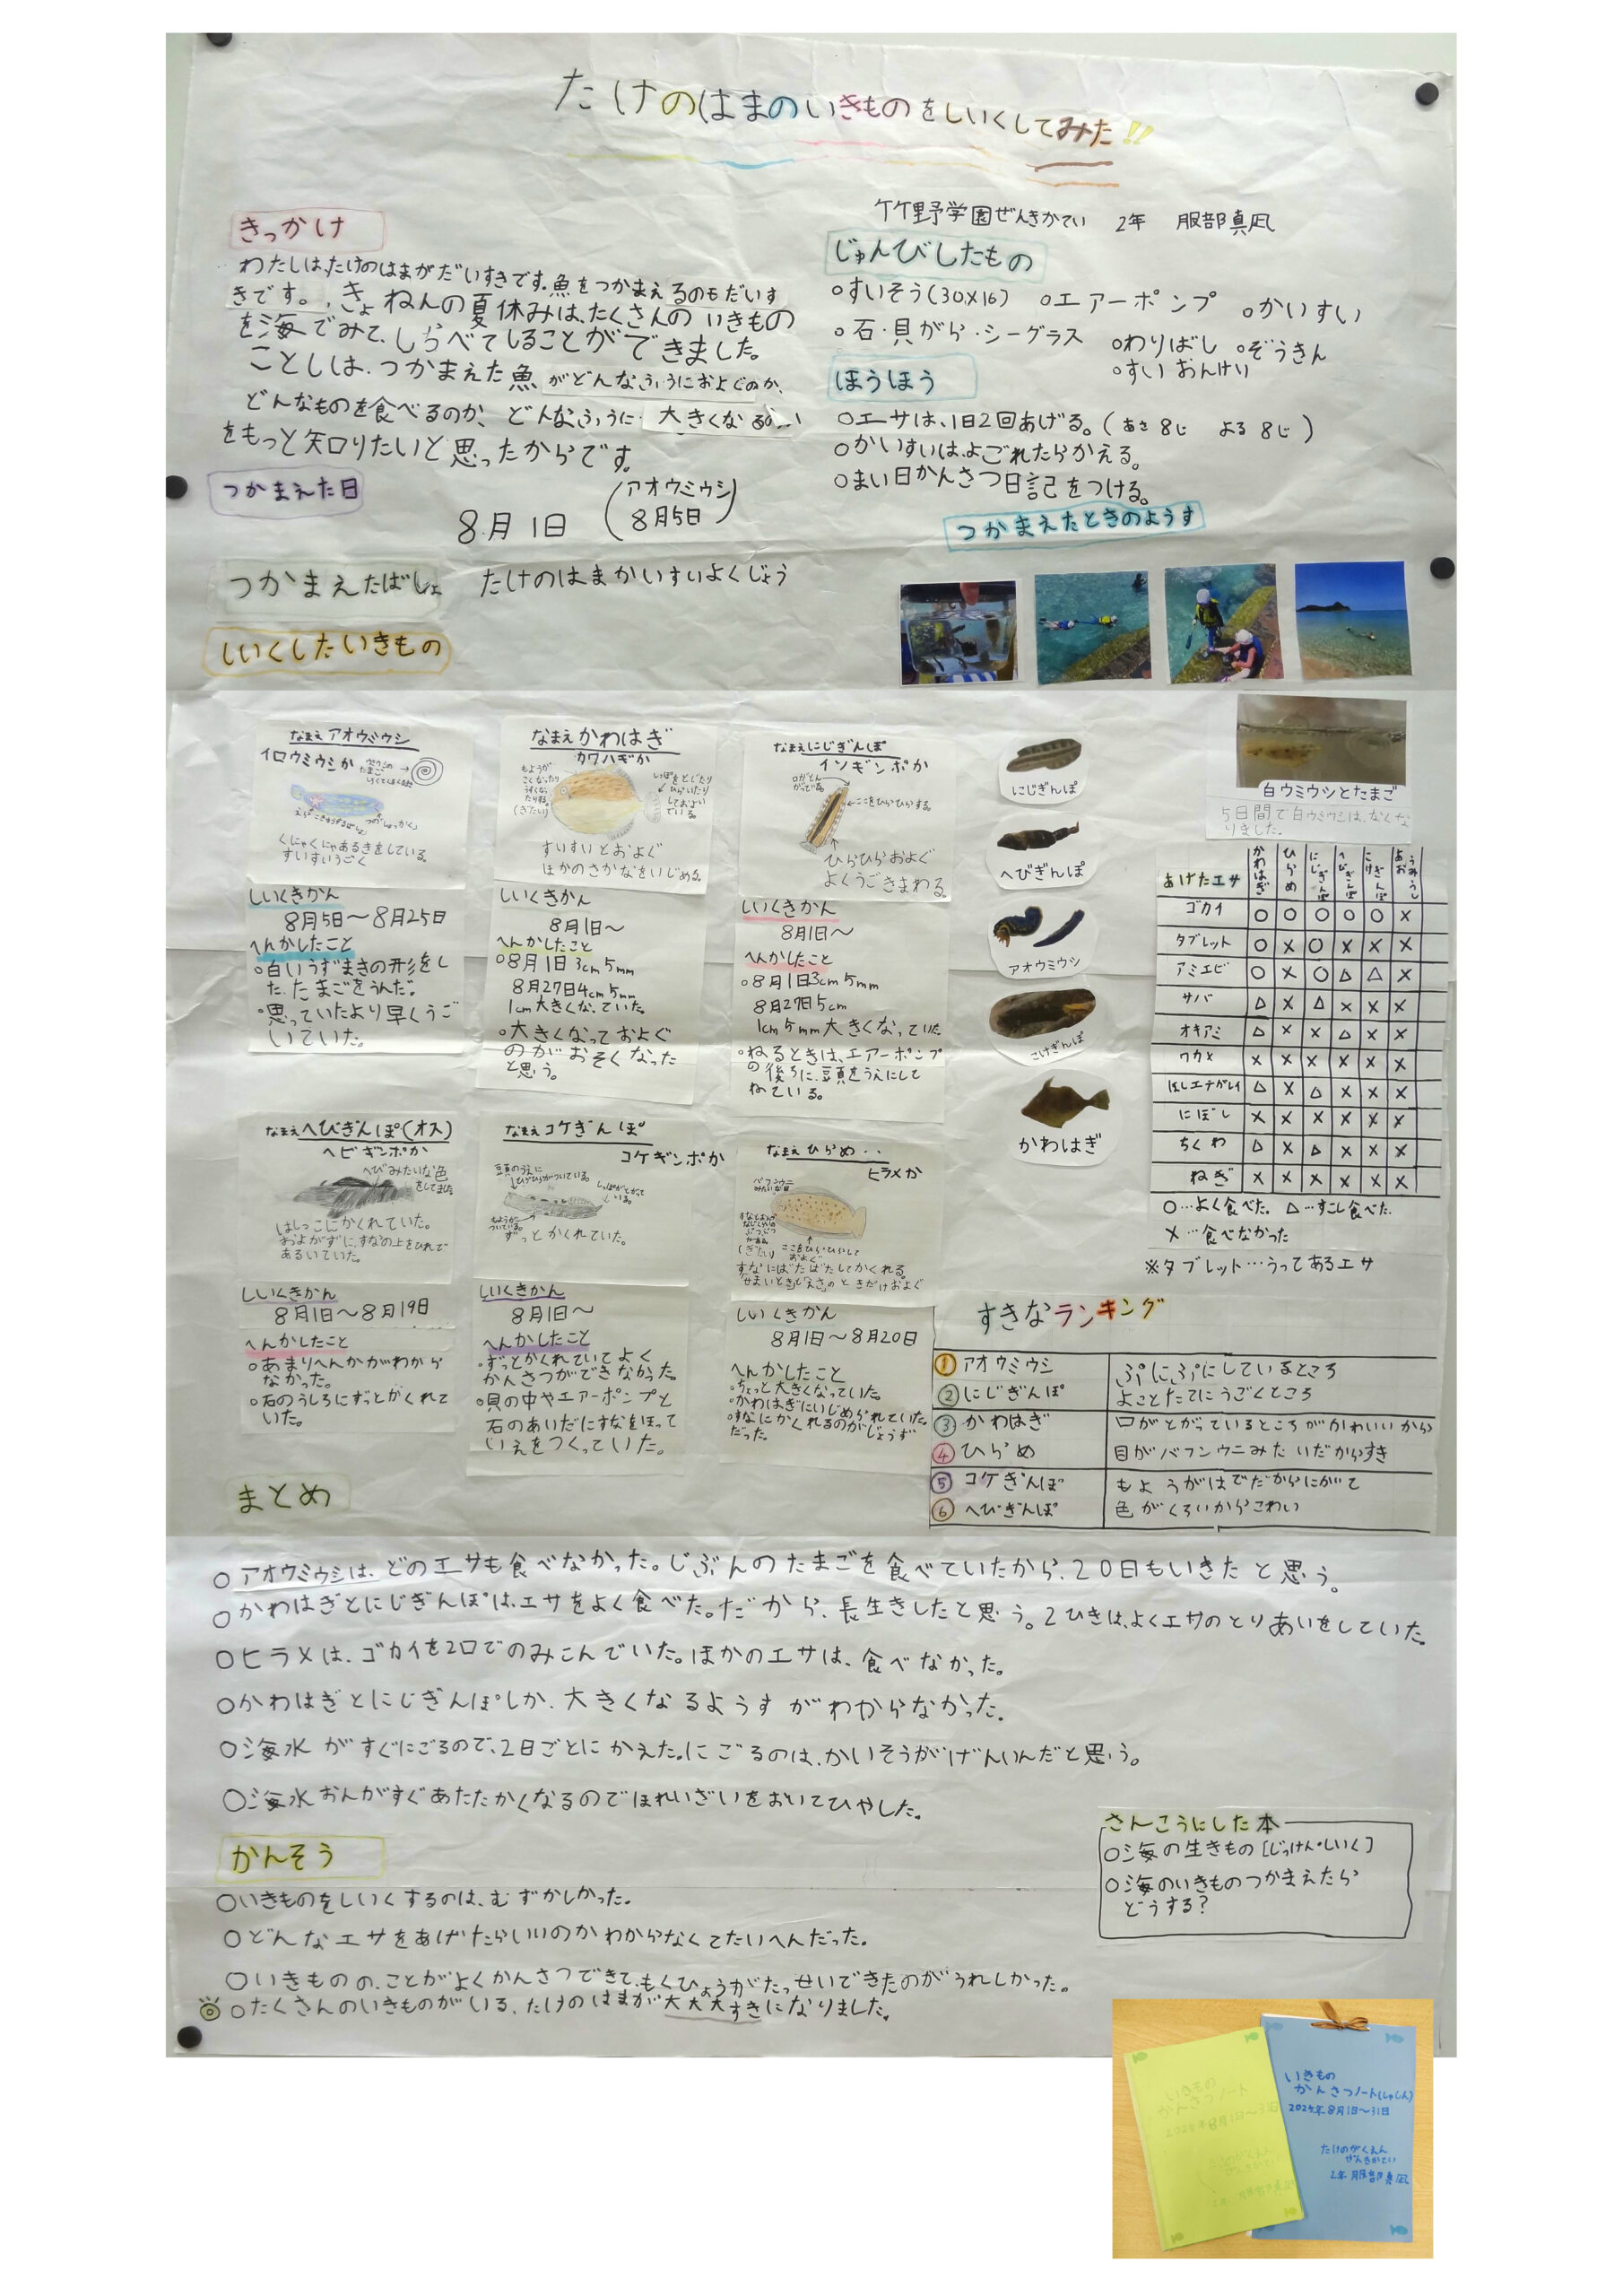 たけのはまのいきものをしいくしてみた!!
竹野学園ぜんきかてい 2年 服部真凪
きっかけ
わたしは、たけのはまがだいすきです。魚をつかまえるのもだいす
きです。きょねんの夏休みは、たくさんのいきもの
を海でみて、しらべてしることができました。
ことしは、つかまえた魚がどんなふうにおよぐのか、
どんなものを食べるのか、どんなふうに大きくなるのか
をもっと知りたいと思ったからです。
つかまえた日
8月1日 (アオウミウシ 8月5日)
つかまえたばしょ たけのはまかいすいよくじょう
しいくしたいきもの
じゅんびしたもの
○すいそう(30×16) ○エアーポンプ ○かいすい
○石・貝がら・シーグラス ○わりばし ○ぞうきん
○すいおんけい
ほうほう
○エサは、1日2回あげる。(あさ8じ よる8じ)
○かいすいは、よごれたらかえる。
○まい日かんさつ日記をつける。
つかまえたときのようす
なまえアオウミウシ
イロウミウシか
くにゃくにゃあるきをしている。
すいすいうごく
しいくきかん
8月5日〜8月25日
へんかしたこと
○白いうずまきの形をし
た、たまごをうんだ。
・思っていたより早くうご
いていた。
なまえかわはぎ
カワハギか
もようが
こくなったり
うすくなっ
たりする。
(ぎたい)
しっぽをとじたり
ひらいたり
しておよい
でいる。
すいすいとおよぐ
ほかのさかなをいじめる。
しいくきかん
8月1日〜
へんかしたこと
○8月1日3cm5mm
8月27日4cm5mm
1cm大きくなっていた。
・大きくなっておよぐ
のがおそくなった
と思う。
なまえにじぎんぽ
イソギンポか
口がとん
がってる。
←ここをひらひらする。
ひらひらおよぐ
よくうごきまわる。
しいくきかん
8月1日〜
へんかしたこと
・8月1日3cm5mm
8月27日5cm
1cm5mm大きくなっていた
・ねるときは、エアーポンプ
の後ろに、頭をうえにして
ねている。
にじぎんぽ
へびぎんぽ
アオウミウシ
こけぎんぽ
かわはぎ
白ウミウシとたまご
5日間で白ウミウシは、なくな
りました。
あげたエサ かわはぎ ひらめ にじぎんぽ へびぎんぽ こけぎんぽ あおうみうし
ゴカイ ○ ○ ○ ○ ○ ×
タブレット ○ × ○ × × ×
アミエビ ○ × ○ △ △ ×
サバ △ × △ × × ×
オキアミ △ × × △ × ×
ワカメ × × × × × ×
ほしエナガレイ △ × △ × × ×
にぼし × × × × × ×
ちくわ △ × △ × × ×
ねぎ × × × × × ×
○…よく食べた。△…すこし食べた。
×…食べなかった
※タブレット…うってあるエサ
なまえへびぎんぽ(オス)
ヘビギンポか
へびみたいな色
をしてました
はしっこにかくれていた。
およがずに、すなの上をひれで
あるいていた。
しいくきかん
8月1日〜8月19日
へんかしたこと
○あまりへんかがわから
なかった。
○石のうしろにずっとかくれて
いた。
なまえコケぎんぽ
コケギンポか
頭のうえに
ひげひげがついている。
もようが
ついている。
ずっとかくれていた。
しいくきかん
8月1日〜
へんかしたこと
・ずっとかくれていてよく
かんさつができなかった。
○貝の中やエアーポンプと
石のあいだにすなをほって
いえをつくっていた。
なまえひらめ
ヒラメか
バフンウニ
みたいな目
(ぎたい)
ここをひらひらして
およぐ
すなにばたばたしてかくれる。
しいくきかん
8月1日〜8月20日
へんかしたこと
・ちょっと大きくなっていた。
・かわはぎにいじめられていた。
○すなにかくれるのがじょうず
だった。
すきなランキング
①アオウミウシ ぷにぷにしているところ
②にじぎんぽ よことたてにうごくところ
③かわはぎ 口がとがっているところがかわいいから
④ひらめ 目がバフンウニみたいだからすき
⑤コケぎんぽ もようがはでだからにがて
⑥へびぎんぽ 色がくろいからこわい
まとめ
○アオウミウシは、どのエサも食べなかった。じぶんのたまごを食べていたから、20日もいきたと思う。
○かわはぎとにじぎんぽは、エサをよく食べた。だから、長生きしたと思う。2ひきは、よくエサのとりあいをしていた。
○ヒラメは、ゴカイを2口でのみこんでいた。ほかのエサは、食べなかった。
○かわはぎとにじぎんぽしか、大きくなるようすがわからなかった。
○海水がすぐにごるので、2日ごとにかえた。にごるのは、かいそうがげんいんだと思う。
○海水おんがすぐあたたかくなるのでほれいざいをおいてひやした。
かんそう
○いきものをしいくするのは、むずかしかった。
○どんなエサをあげたらいいのかわからなくてたいへんだった。
○いきものの、ことがよくかんさつできて、もくひょうがたっせいできたのがうれしかった。
○たくさんのいきものがいる、たけのはまが大大大すきになりました。
さんこうにした本
○海の生きもの[じっけん・しいく]
○海のいきものつかまえたら
どうする?
いきもの
かんさつノート
2024年8月1日〜31日
いきもの
かんさつノート(しゃしん)
2024年8月1日〜31日
たけのがくえん
ぜんきかてい
2年服部真凪